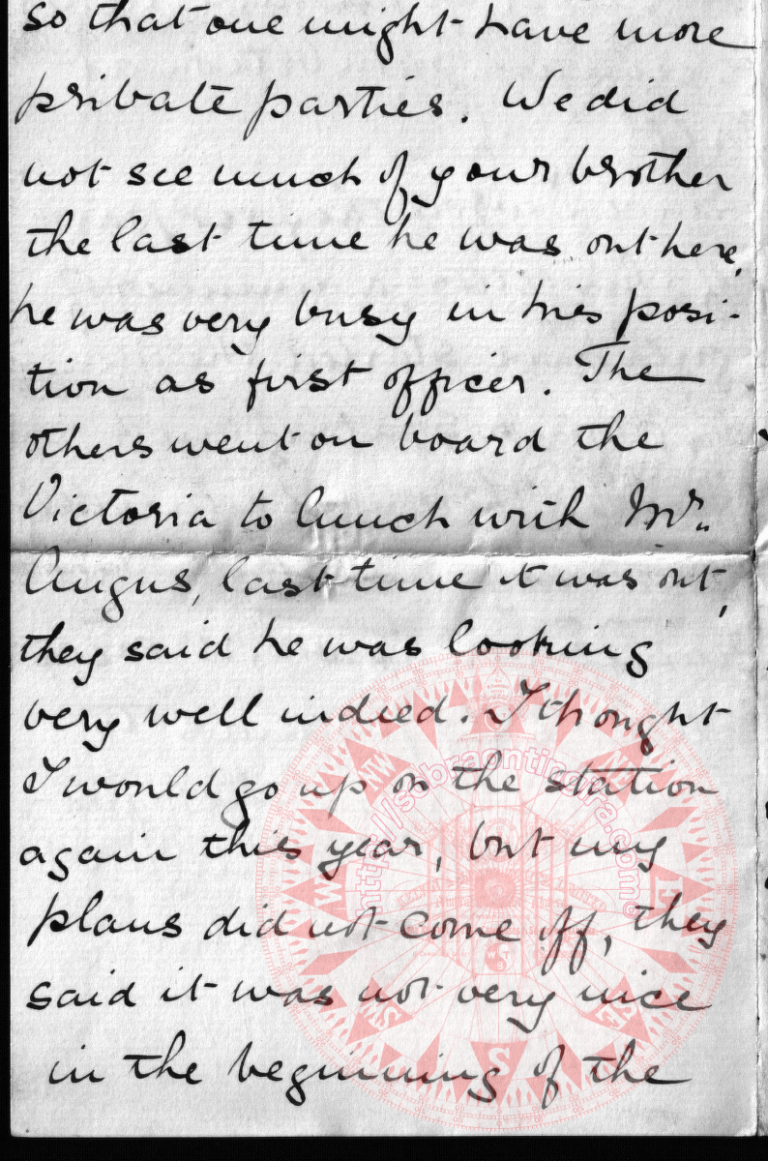 so that one might have more
private parties. We did
not see much of your brother
the last time he was out here,
he was very busy in his posi-
tion as first officer. The
others went on board the
Victoria to lunch with Mr.
Angus, last time it was out,
they said he was looking
very well indeed. I thought
I would go up on the station
again this year, but my
plans did not come off, they
said it was not very nice
in the beginning of the
NW
W
E
SW
SE
S